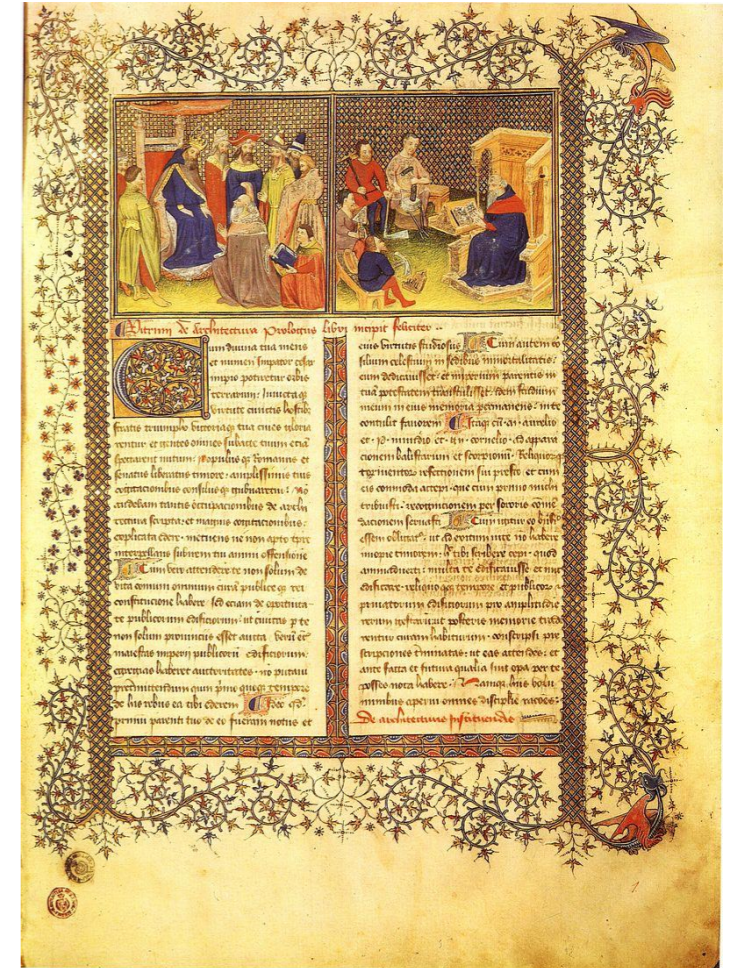 Vitruvii de Architectura Prologus libri incipit feliciter
Cum divina tua mens
et numen Imperator cesar
imperio potiretur orbis
terrarum: Invictaque
virtute cunctis hostib
stratis triumpho victoriaque tua cives gloria
rentur: et gentes omnes subacte tuum
spectarent nutum: populusque Romanus et
senatus liberatus timore: amplissimis tuis
cogitacionibus consiliisque gubnaretur: no
audebam tantis occupacionibus de archi
tectura scripta: et magnis cogitacionibus
explicata edere: metuens ne non apto tpre
interpellans subirem tui animi offensione
Cum vero attenderē te non solum de
vita comuni omnium curā publiceque rei
constitucione habere sed eciam de oportunita
te publicorum edificiorum: ut civitas p te
non solum provinciis esset aucta verū et
maiestas imperii publicorū edificiorum
egregias haberet auctoritates no putavi
pretmittendum quin primo quoque tempore
de his rebus ea tibi ederem Ideo qd
primū parenti tuo de eo fueram notus et
eius virtutis studiosus Cum autem co
silium celestium in sedibus inmortalitatis
eum dedicavisset: et imperium parentis in
tuā potestatem transtulisset: idem studium
meum in eius memoria permanens: in te
contulit favorem Itaque cū. aurelio
et p. minidio et. cornelio ad appara
cionem balistarum et scorpionū. Reliquorque
tormentor refectionem fui presto et cum
eis comoda accepi: que cum primo michi
tribuisti recognicionem per sororis come
dacionem servasti Cum igitur eo bnfi
essem obligat ut ad exitum vite no habere
inopie timorem h tibi scribere cepi quod
animadverti multa te edificavisse et nuc
edificare. reliquo quoque tempore et publicor
privatorum edificiorum pro amplitudie
rerum gestarum ut posteris memorie trade
rentur curam habiturum conscripsi pre
scripciones terminatas: ut eas attendes et
ante facta et futura qualia sint opa per te
posses nota habere Namque his volu
minibus aperui omnes discipline raciōes
De architectura Instituendis